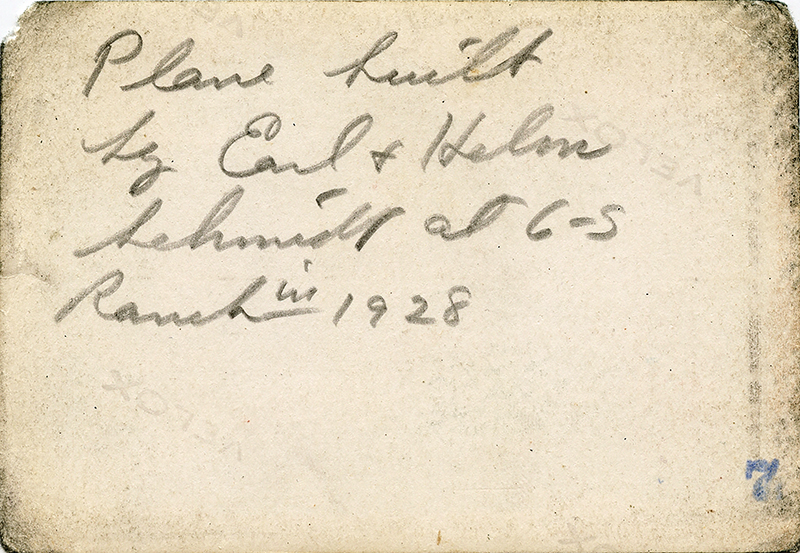 Plane built
by Earl & Helen
Schmidt at 6-S
Ranch in 1928
VELOX
VELOX
7